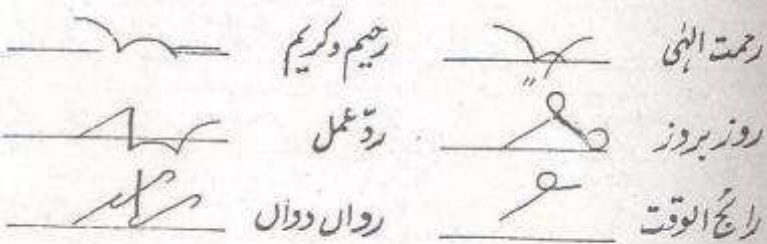 رحمت الٰہی رحیم و کریم
روز بروز ردِّ عمل
رائج الوقت رواں دواں